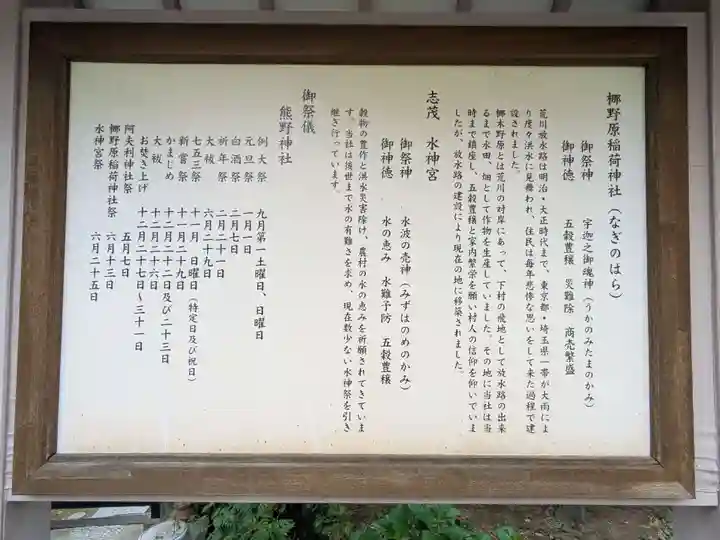 梛野原稲荷神社（なぎのはら）
御祭神　宇迦之御魂神（うかのみたまのかみ）
御神徳　五穀豊穣　災難除　商売繁盛
荒川放水路は明治・大正時代まで、東京都・埼玉県一帯が大雨によ
り度々洪水に見舞われ、住民は毎年悲惨な思いをして来た過程で建
設されました。
梛木野原とは荒川の対岸にあって、下村の飛地として放水路の出来
るまで水田、畑として作物を生産していました。その地に当社は当
時まで鎮座し、五穀豊穣と家内繁栄を願い村人の信仰を仰いでいま
したが、放水路の建設により現在の地に移築されました。
志茂　水神宮
御祭神　水波の売神（みずはのめのかみ）
御神徳　水の恵み　水難予防　五穀豊穣
穀物の豊作と洪水災害除け、農村の水の恵みを祈願されてきていま
す。当社は後世まで水の有難さを求め、現在数少ない水神祭を引き
継ぎ行っています。
御祭儀
熊野神社
例大祭　九月第一土曜日、日曜日
元旦祭　一月一日
白酒祭　二月七日
祈年祭　二月二十一日
大祓　六月二十九日
七五三祭　十一月一日曜日（特定日及び祝日）
新嘗祭　十一月二十九日
かまじめ　十二月二十二日及び二十三日
大祓　十二月二十六日
お焚き上げ　十二月二十七日～三十一日
阿夫利神社祭　五月七日
梛野原稲荷神社祭　六月十三日
水神宮祭　六月二十五日